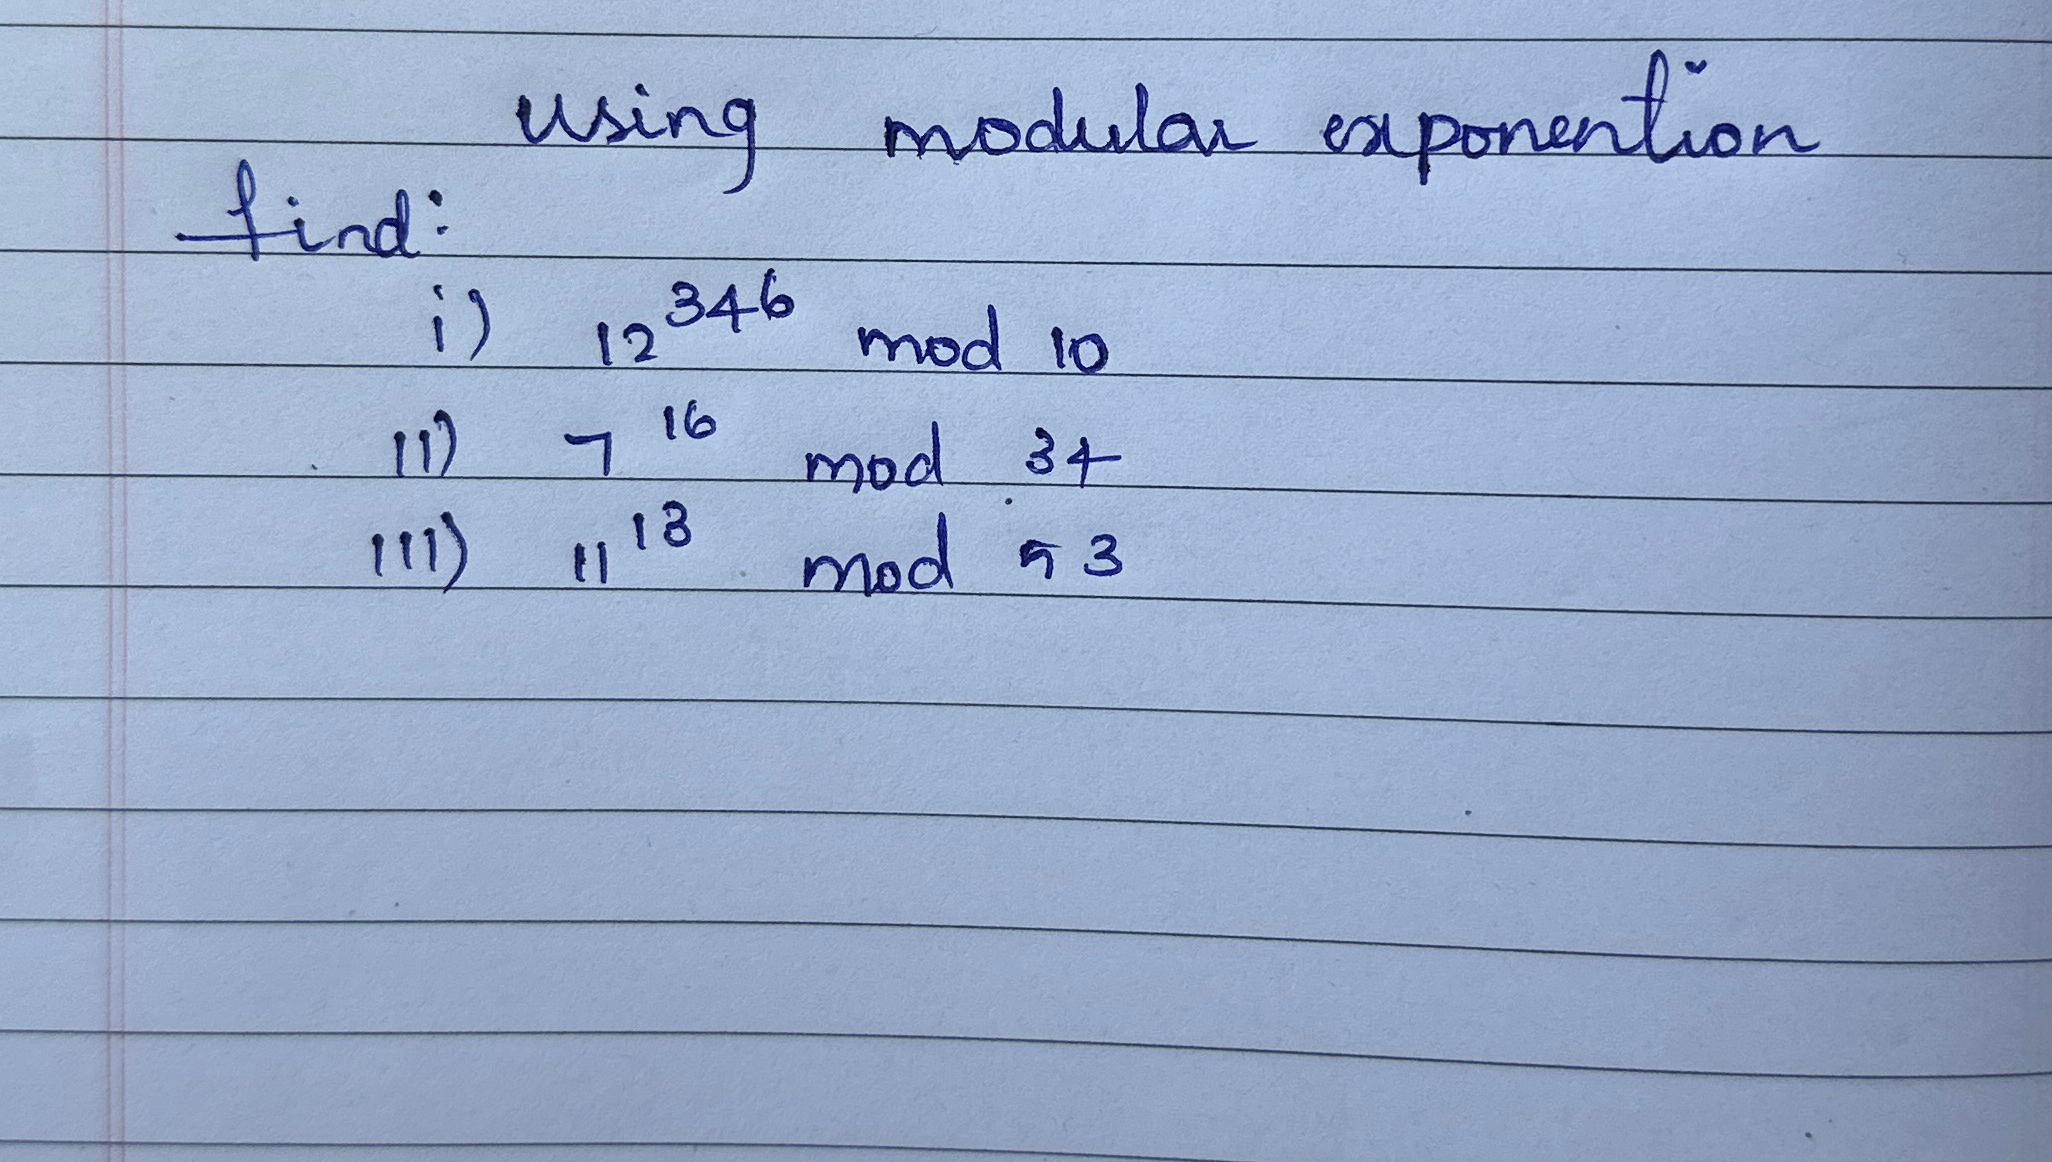 using modular exponention
find:
i) 12^346 mod 10
ii) 7^16 mod 34
iii) 11^13 mod 53